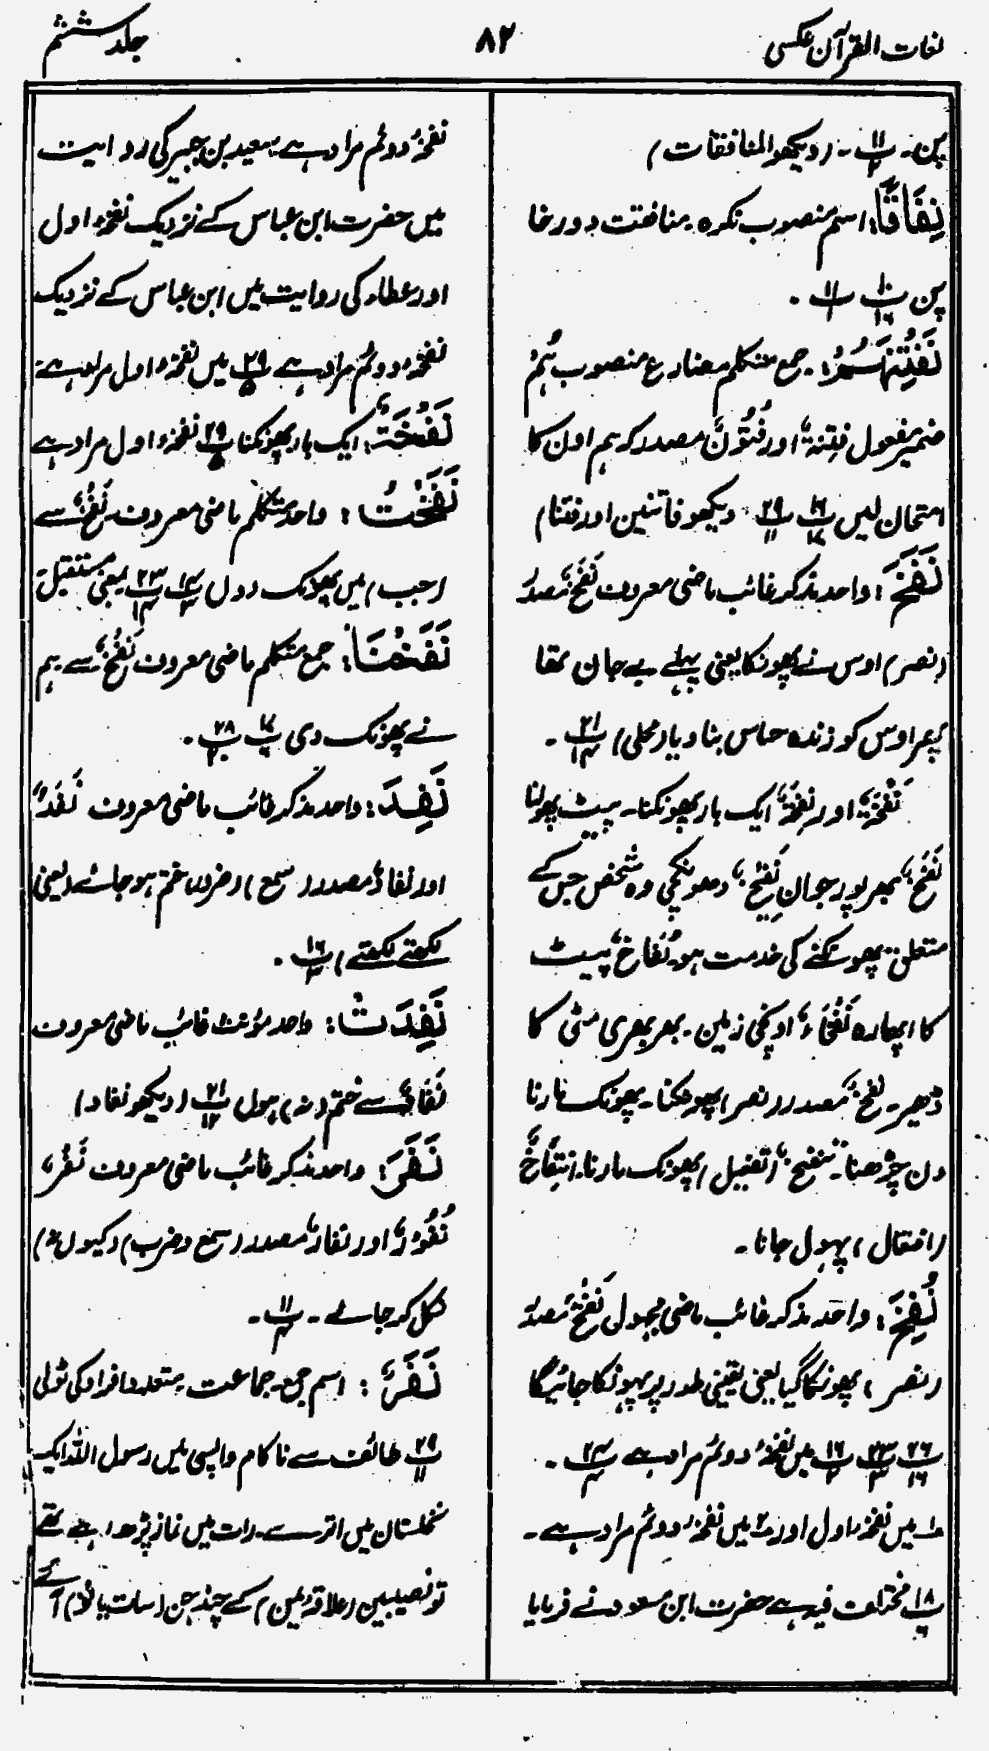 لغات القرآن عکسی
۸۲
جلد ششم
پن۔ پ ۱۱/۲ ۔ (دیکھو المنافقات)
نِفَاقًا: اسم منصوب نکرہ۔ منافقت دورخا
پن پ ۱۰/۱۶ پ ۱۱/۲ ۔
نَفْتِنَهُمْ: جمع متکلم مضارع منصوب ہُمْ
ضمیر مفعول فِتْنَةٌ اور فُتُوْنٌ مصدر کہ ہم اون کا
امتحان لیں پ ۱۶/۱۷ پ ۲۹/۱۱ دیکھو فاتنین اور فتنا)
نَفَخَ: واحد مذکر غائب ماضی معروف نَفْخٌ مصدر
(نصر) اوس نے پھونکا یعنی پہلے بے جان تھا
پھر اوس کو زندہ حساس بنا دیا (محلی) پ ۲۱/۱۴ ۔
نَفْخَةٌ اور نِفْخَةٌ ایک بار پھونکنا۔ پیٹ پھولنا
نَفْخٌ بھرپور جوان نَفِيْخٌ دھونکچی وہ شخص جس کے
متعلق پھونکنے کی خدمت ہو نُفَاخٌ پیٹ
کا اپھارہ نَفْخَاءُ اونچی زمین۔ بھربھری مٹی کا
ڈھیر۔ نفخ مصدر (نصر) پھونکنا۔ پھونک مارنا
دن چڑھنا۔ تنفیخ (تفعیل) پھونک مارنا۔ اِنْتِفَاخٌ
(افتعال) پھول جانا۔
نُفِخَ: واحد مذکر غائب ماضی مجہول نَفْخٌ مصدر
(نصر) پھونکا گیا یعنی یقینی طور پر پھونکا جائیگا
پ ۲۶/۱۶ پ ۲۳/۳ پ ۱۶/۲ میں نفخۂ دوئم مراد ہے پ ۲۴/۴ ۔
۱ میں نفخۂ اول اور ۲ میں نفخۂ دوئم مراد ہے۔
پ ۱۸/۶ مختلف فیہ ہے حضرت ابن مسعود نے فرمایا
نفخۂ دوئم مراد ہے سعید بن جبیر کی روایت
میں حضرت ابن عباس کے نزدیک نفخۂ اول
اور عطاء کی روایت میں ابن عباس کے نزدیک
نفخۂ دوئم مراد ہے پ ۲۹/۵ میں نفخۂ اول مراد ہے۔
نَفْخَةٌ: ایک بار پھونکنا پ ۲۹/۵ نفخۂ اول مراد ہے
نَفَخْتُ: واحد متکلم ماضی معروف نَفْخٌ سے
(جب) میں پھونک دوں پ ۱۴/۳ پ ۲۳/۱۴ بمعنی مستقبل۔
نَفَخْنَا: جمع متکلم ماضی معروف نَفْخٌ سے ہم
نے پھونک دی پ ۱۷/۶ پ ۲۸/۲۰ ۔
نَفِدَ: واحد مذکر غائب ماضی معروف نَفَدٌ
اور نفاد مصدر (سمع) (ضرور) ختم ہو جائے (یعنی
لکھتے لکھتے) پ ۱۶/۳ ۔
نَفِدَتْ: واحد مؤنث غائب ماضی معروف
نَفَادٌ سے ختم (نہ) ہوں پ ۲۱/۱۲ (دیکھو نفاد)
نَفَرَ: واحد مذکر غائب ماضی معروف نَفْرٌ،
نُفُوْرٌ اور نفار مصدر (سمع و ضرب) (کیوں نہ)
نکل کر جائے۔ پ ۱۱/۴ ۔
نَفَرٌ: اسم جمع۔ جماعت۔ متعدد افراد کی ٹولی
پ ۲۹/۱۱ طائف سے ناکام واپسی میں رسول اللہ ایک
نخلستان میں اترے۔ رات میں نماز پڑھ رہے تھے
تو نصیبین (علاقہ یمن) کے چند جن (سات یا نو) آئے